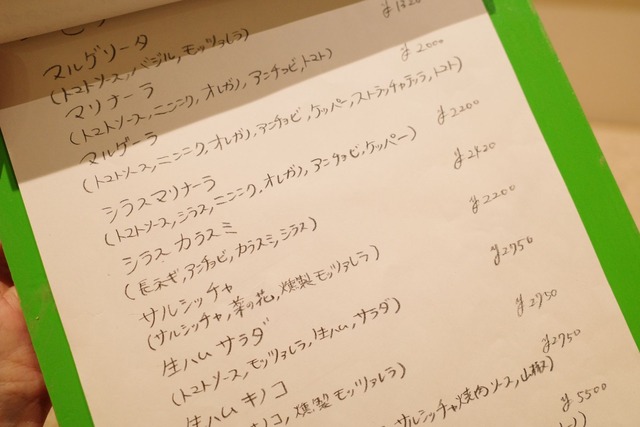 マルゲリータ ¥1820
(トマトソース, バジル, モッツァレラ)
マリナーラ ¥2000
(トマトソース, ニンニク, オレガノ, アンチョビ, トマト)
マルゲーラ ¥2200
(トマトソース, ニンニク, オレガノ, アンチョビ, ケッパー, ストラッチャテッラ, トマト)
シラスマリナーラ ¥2420
(トマトソース, シラス, ニンニク, オレガノ, アンチョビ, ケッパー)
シラス カラスミ ¥2200
(長ネギ, アンチョビ, カラスミ, シラス)
サルシッチャ ¥2750
(サルシッチャ, 菜の花, 燻製モッツァレラ)
生ハム サラダ ¥2750
(トマトソース, モッツァレラ, 生ハム, サラダ)
生ハム キノコ ¥2750
キノコ, 燻製モッツァレラ)
¥5500
サルシッチャ焼肉ソース, 山椒)